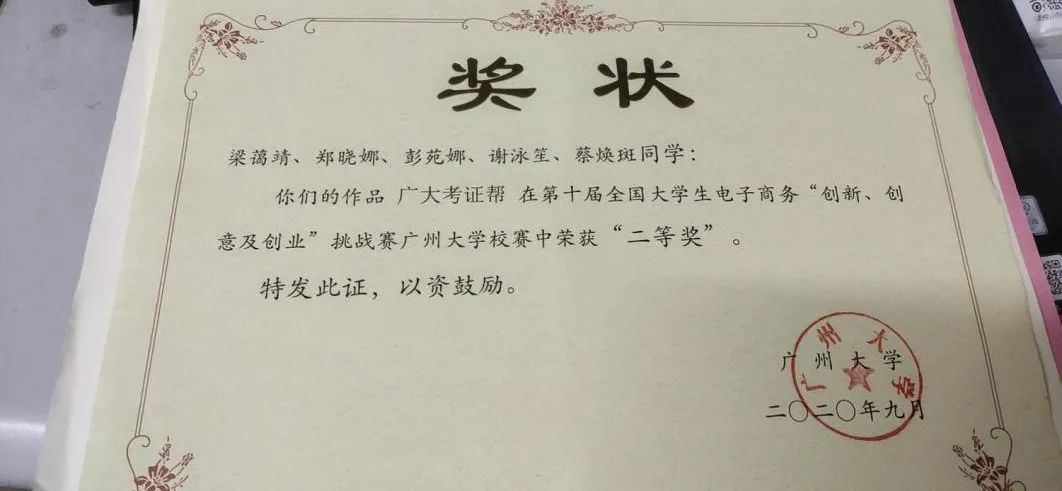 奖 状
梁蔼靖、郑晓娜、彭苑娜、谢泳笙、蔡焕斑同学：
你们的作品 广大考证帮 在第十届全国大学生电子商务“创新、创
意及创业”挑战赛广州大学校赛中荣获“二等奖”。
特发此证，以资鼓励。
广州大学
广州大学
二〇二〇年九月